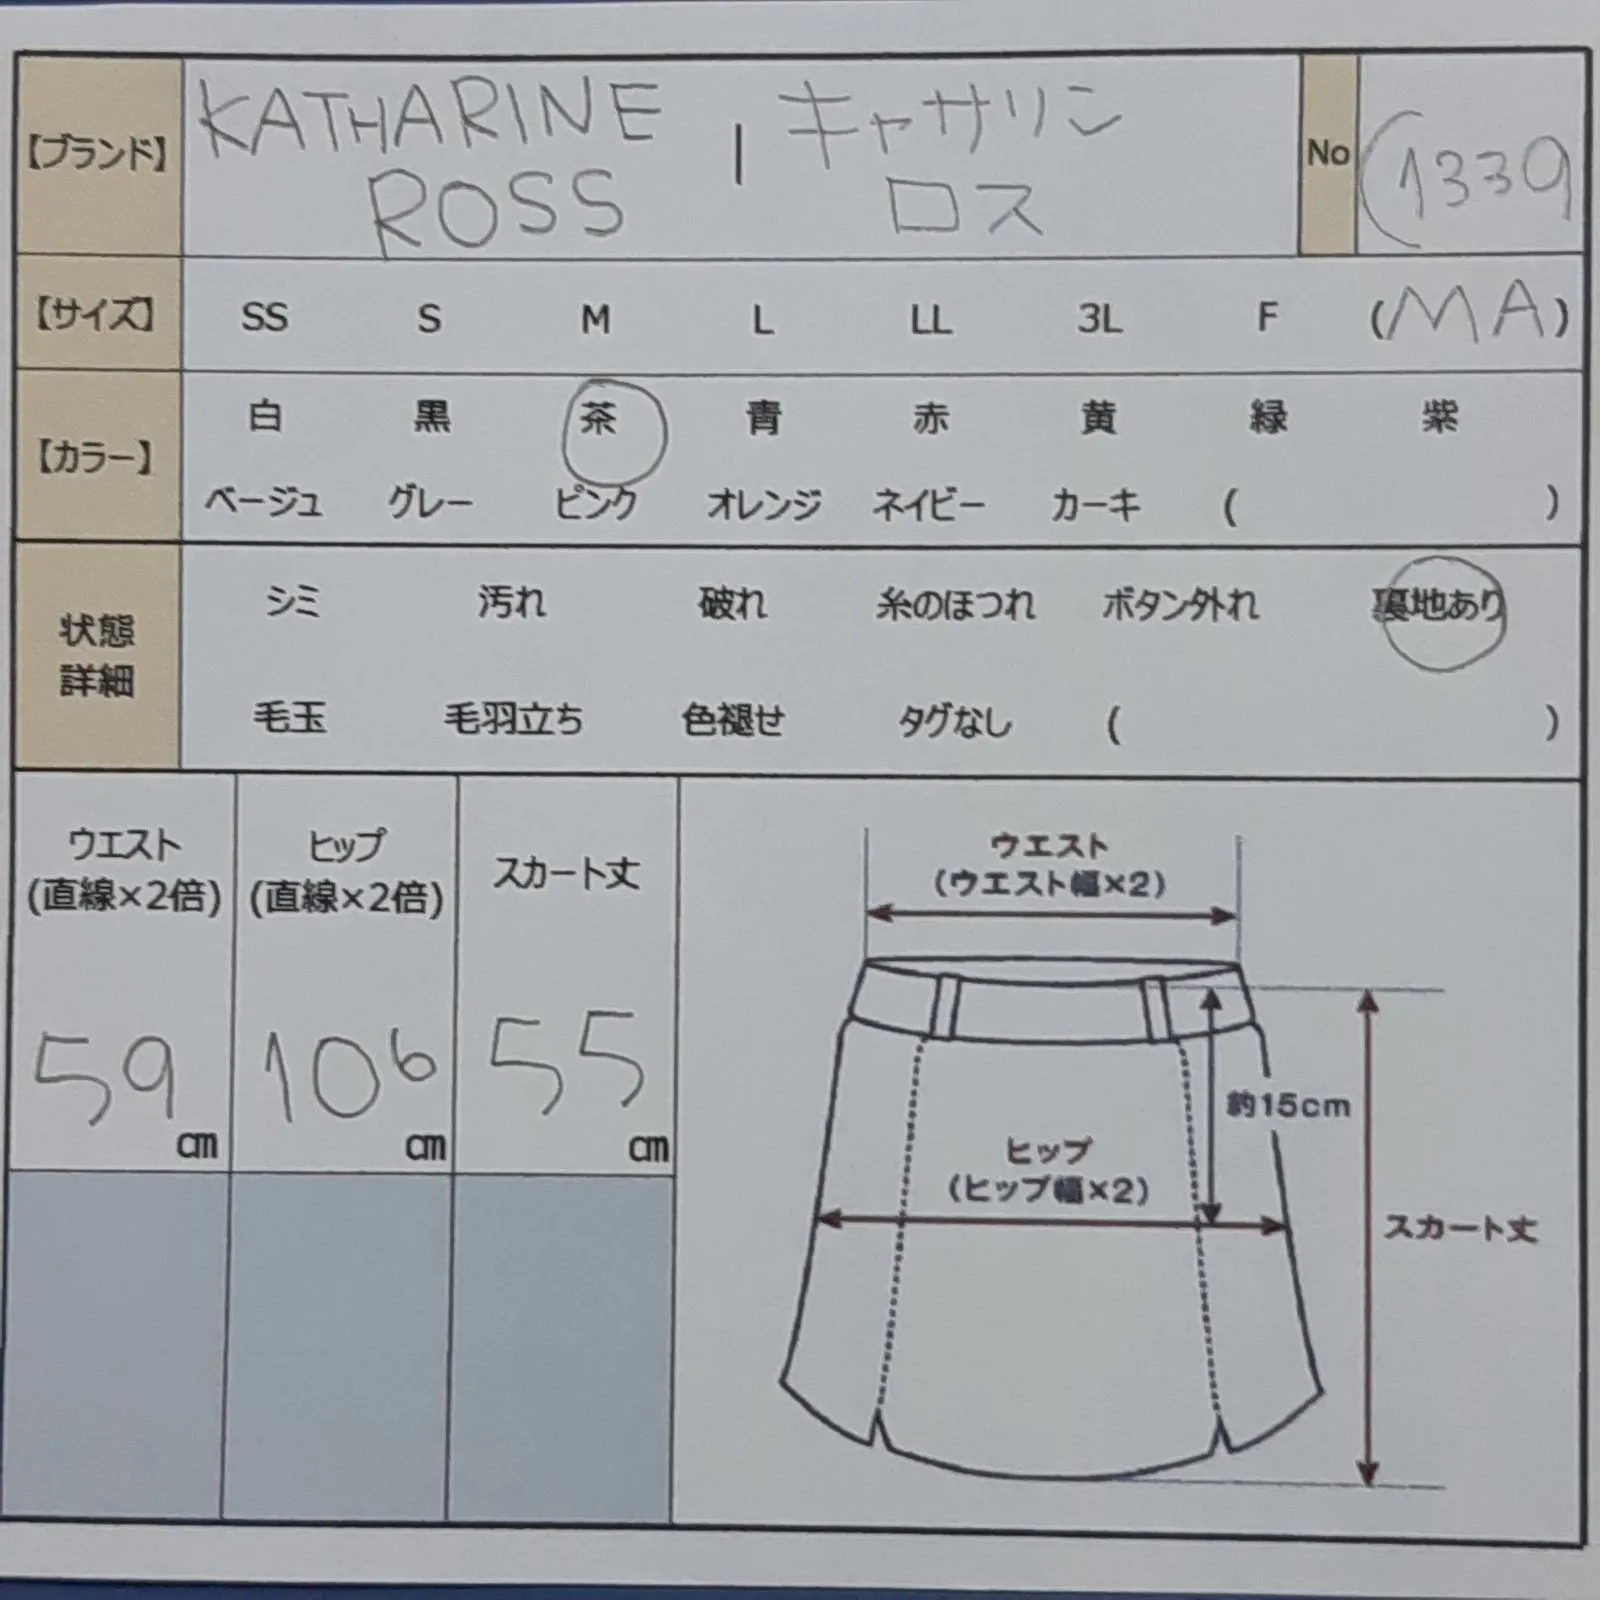 【ブランド】 KATHARINE | キャサリン No (1339
ROSS ロス
【サイズ】 SS S M L LL 3L F (MA)
【カラー】 白 黒 茶 青 赤 黄 緑 紫
ベージュ グレー ピンク オレンジ ネイビー カーキ ( )
状態 シミ 汚れ 破れ 糸のほつれ ボタン外れ 裏地あり
詳細 毛玉 毛羽立ち 色褪せ タグなし ( )
ウエスト
(直線×2倍)
59 cm
ヒップ
(直線×2倍)
106 cm
スカート丈
55 cm
ウエスト
(ウエスト幅×2)
約15cm
ヒップ
(ヒップ幅×2)
スカート丈